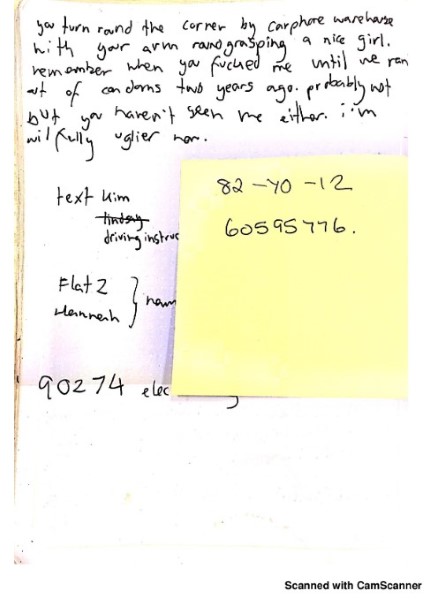 you turn round the corner by carphone warehouse
with your arm round grasping a nice girl.
remember when you fucked me until we ran
out of condoms two years ago. probably not
but you haven't seen me either. i'm
wilfully uglier now.
text Kim
lindsay
driving instruc
82-40-12
60595776.
Flat 2
Hannah
} nam
90274 elec
Scanned with CamScanner